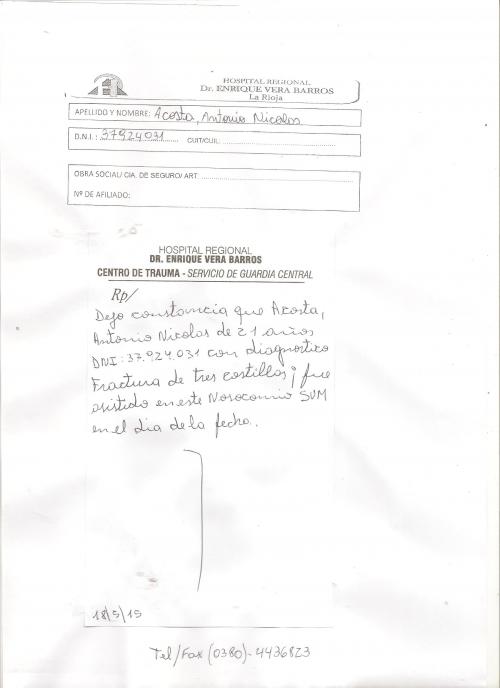 HOSPITAL REGIONAL
Dr. ENRIQUE VERA BARROS
La Rioja
APELLIDO Y NOMBRE: Acosta, Antonio Nicolas
D.N.I.: 37924031 CUIT/CUIL:
OBRA SOCIAL/ CIA. DE SEGURO/ ART:
Nº DE AFILIADO:
HOSPITAL REGIONAL
DR. ENRIQUE VERA BARROS
CENTRO DE TRAUMA - SERVICIO DE GUARDIA CENTRAL
Rp/
Dejo constancia que Acosta,
Antonio Nicolas de 21 años
DNI: 37.924.031 con diagnostico
Fractura de tres costillas; fue
asistido en este Nosocomio SUM
en el dia de la fecha.
18/5/15
Tel/Fax (0380)-4436823